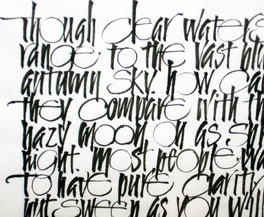 though clear waters
range to the vast blu
autumn sky. how can
they compare with th
hazy moon on a sp
night. most people
to have pure clarity
but sweep as you will